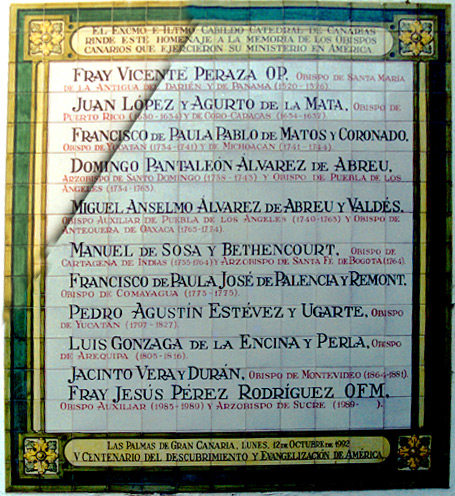 EL EXCMO E ILTMO CABILDO CATEDRAL DE CANARIAS
RINDE ESTE HOMENAJE A LA MEMORIA DE LOS OBISPOS
CANARIOS QUE EJERCIERON SU MINISTERIO EN AMÉRICA.
FRAY VICENTE PERAZA OP, OBISPO DE SANTA MARÍA
DE LA ANTIGUA DEL DARIÉN Y DE PANAMÁ (1520-1526)
JUAN LÓPEZ Y AGURTO DE LA MATA, OBISPO DE
PUERTO RICO (1630-1634) Y DE CORO CARACAS (1634-1637).
FRANCISCO DE PAULA PABLO DE MATOS Y CORONADO,
OBISPO DE YUCATÁN (1734-1741) Y DE MICHOACÁN (1741-1744).
DOMINGO PANTALEÓN ÁLVAREZ DE ABREU,
ARZOBISPO DE SANTO DOMINGO (1738-1743) Y OBISPO DE PUEBLA DE LOS
ÁNGELES (1734-1763).
MIGUEL ANSELMO ÁLVAREZ DE ABREU Y VALDÉS,
OBISPO AUXILIAR DE PUEBLA DE LOS ÁNGELES (1740-1763) Y OBISPO DE
ANTEQUERA DE OAXACA (1765-1774).
MANUEL DE SOSA Y BETHENCOURT, OBISPO DE
CARTAGENA DE INDIAS (1755-1764) Y ARZOBISPO DE SANTA FE DE BOGOTÁ (1764).
FRANCISCO DE PAULA JOSÉ DE PALENCIA Y REMONT,
OBISPO DE COMAYAGUA (1773-1775).
PEDRO AGUSTÍN ESTÉVEZ Y UGARTE, OBISPO
DE YUCATÁN (1797-1827).
LUIS GONZAGA DE LA ENCINA Y PERLA, OBISPO
DE AREQUIPA (1805-1816).
JACINTO VERA Y DURÁN, OBISPO DE MONTEVIDEO (1864-1881).
FRAY JESÚS PÉREZ RODRÍGUEZ OFM,
OBISPO AUXILIAR (1985-1989) Y ARZOBISPO DE SUCRE (1989- ).
LAS PALMAS DE GRAN CANARIA, LUNES, 12 DE OCTUBRE DE 1992
V CENTENARIO DEL DESCUBRIMIENTO Y EVANGELIZACIÓN DE AMÉRICA.